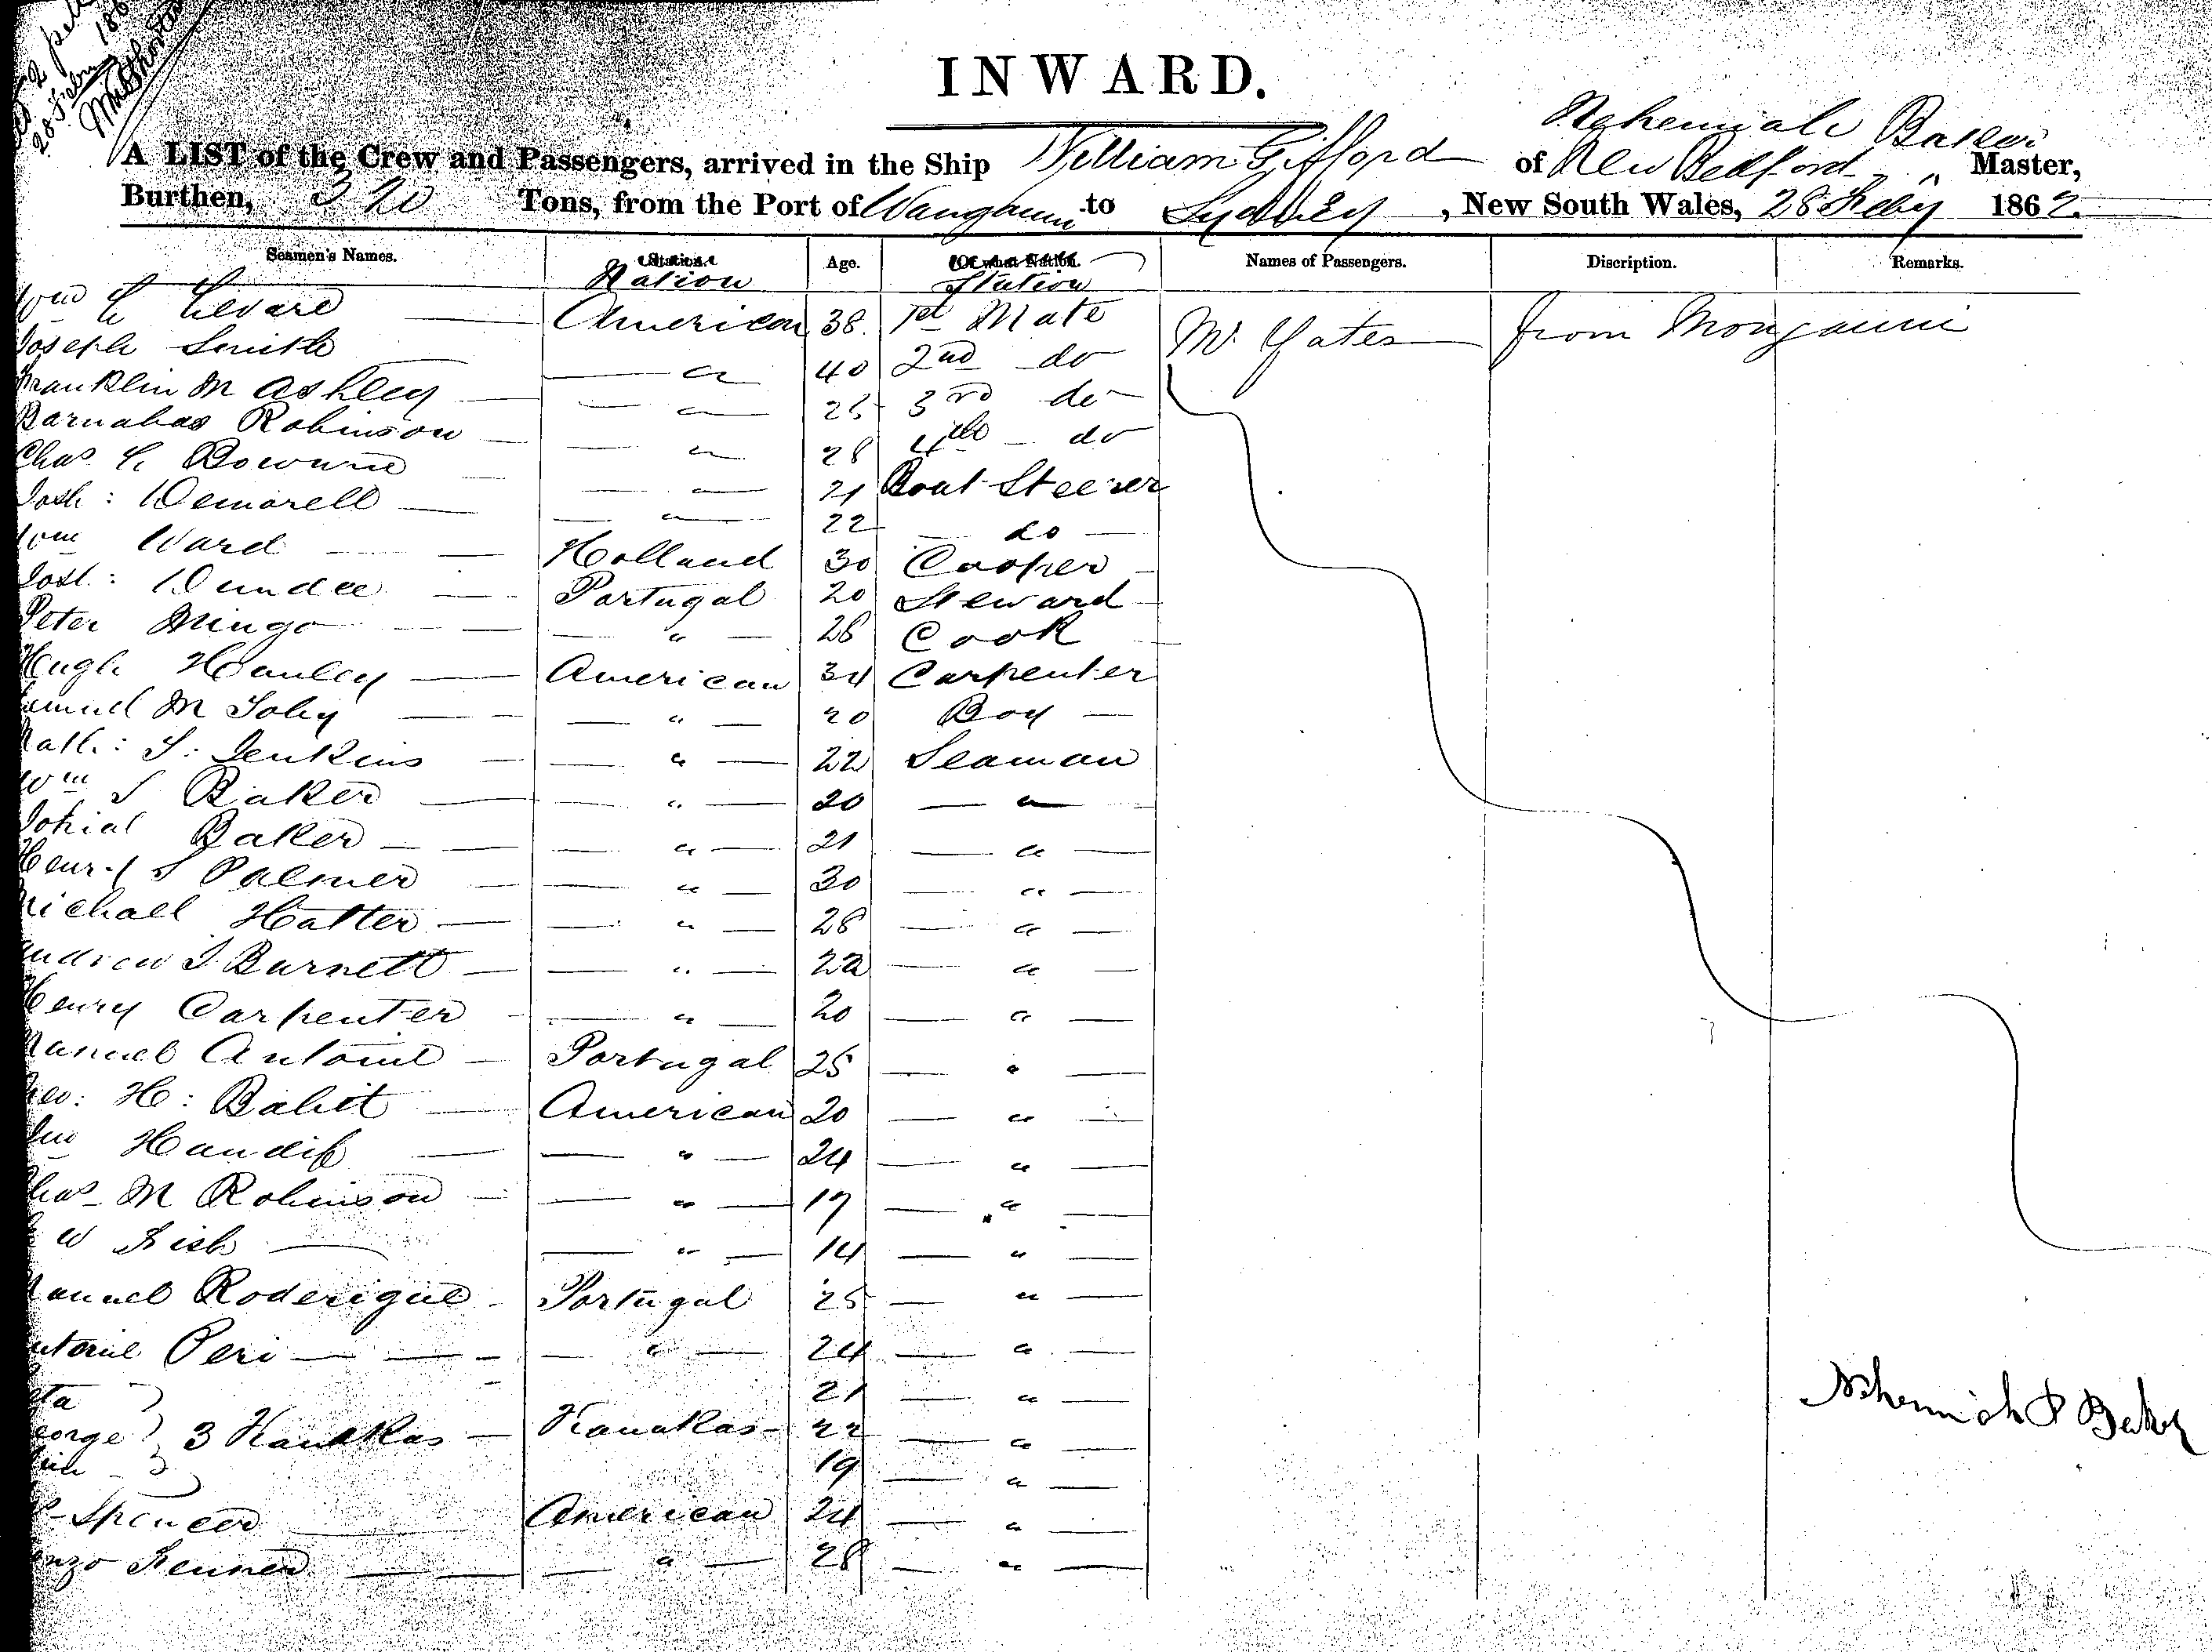 INWARD.
Nehemiah Baker
A LIST of the Crew and Passengers, arrived in the Ship William Gifford of New Bedford Master,
Burthen, 320 Tons, from the Port of to Sydney, New South Wales, 28 Feby 1862.
Seamen's Names. Station. Age. Of what Nation. Names of Passengers. Discription. Remarks.
Nation Station
Wm American 38 1st Mate Mr Yates from Monganui
Joseph Smith " 40 2nd do
Franklin M Ashley " 25 3rd do
Barnabas Robinson " 28 4th do
Chas " 21 Boat Steerer
Josh: Demarell " 22 do
Wm Ward Holland 30 Cooper
Josh: Dundee Portugal 20 Steward
Peter Mingo " 28 Cook
Hugh Hanley American 34 Carpenter
M Toby " 20 Boy
Nath: S: Jenkins " 22 Seaman
Wm S Baker " 20 "
Baker " 21 "
Henry S Palmer " 30 "
Michael Hatter " 28 "
Andrew J Burnett " 22 "
Henry Carpenter " 20 "
Manuel Antoine Portugal 25 "
Geo: H: Babit American 20 "
" 24 "
Chas M Robinson " 17 "
W Fish " 14 "
Manuel Roderique Portugal 25 "
Peri " 24 "
21 "
George 3 Kanakas Kanakas 22 "
19 "
Spencer American 24 "
" 28 "
Nehemiah P Baker